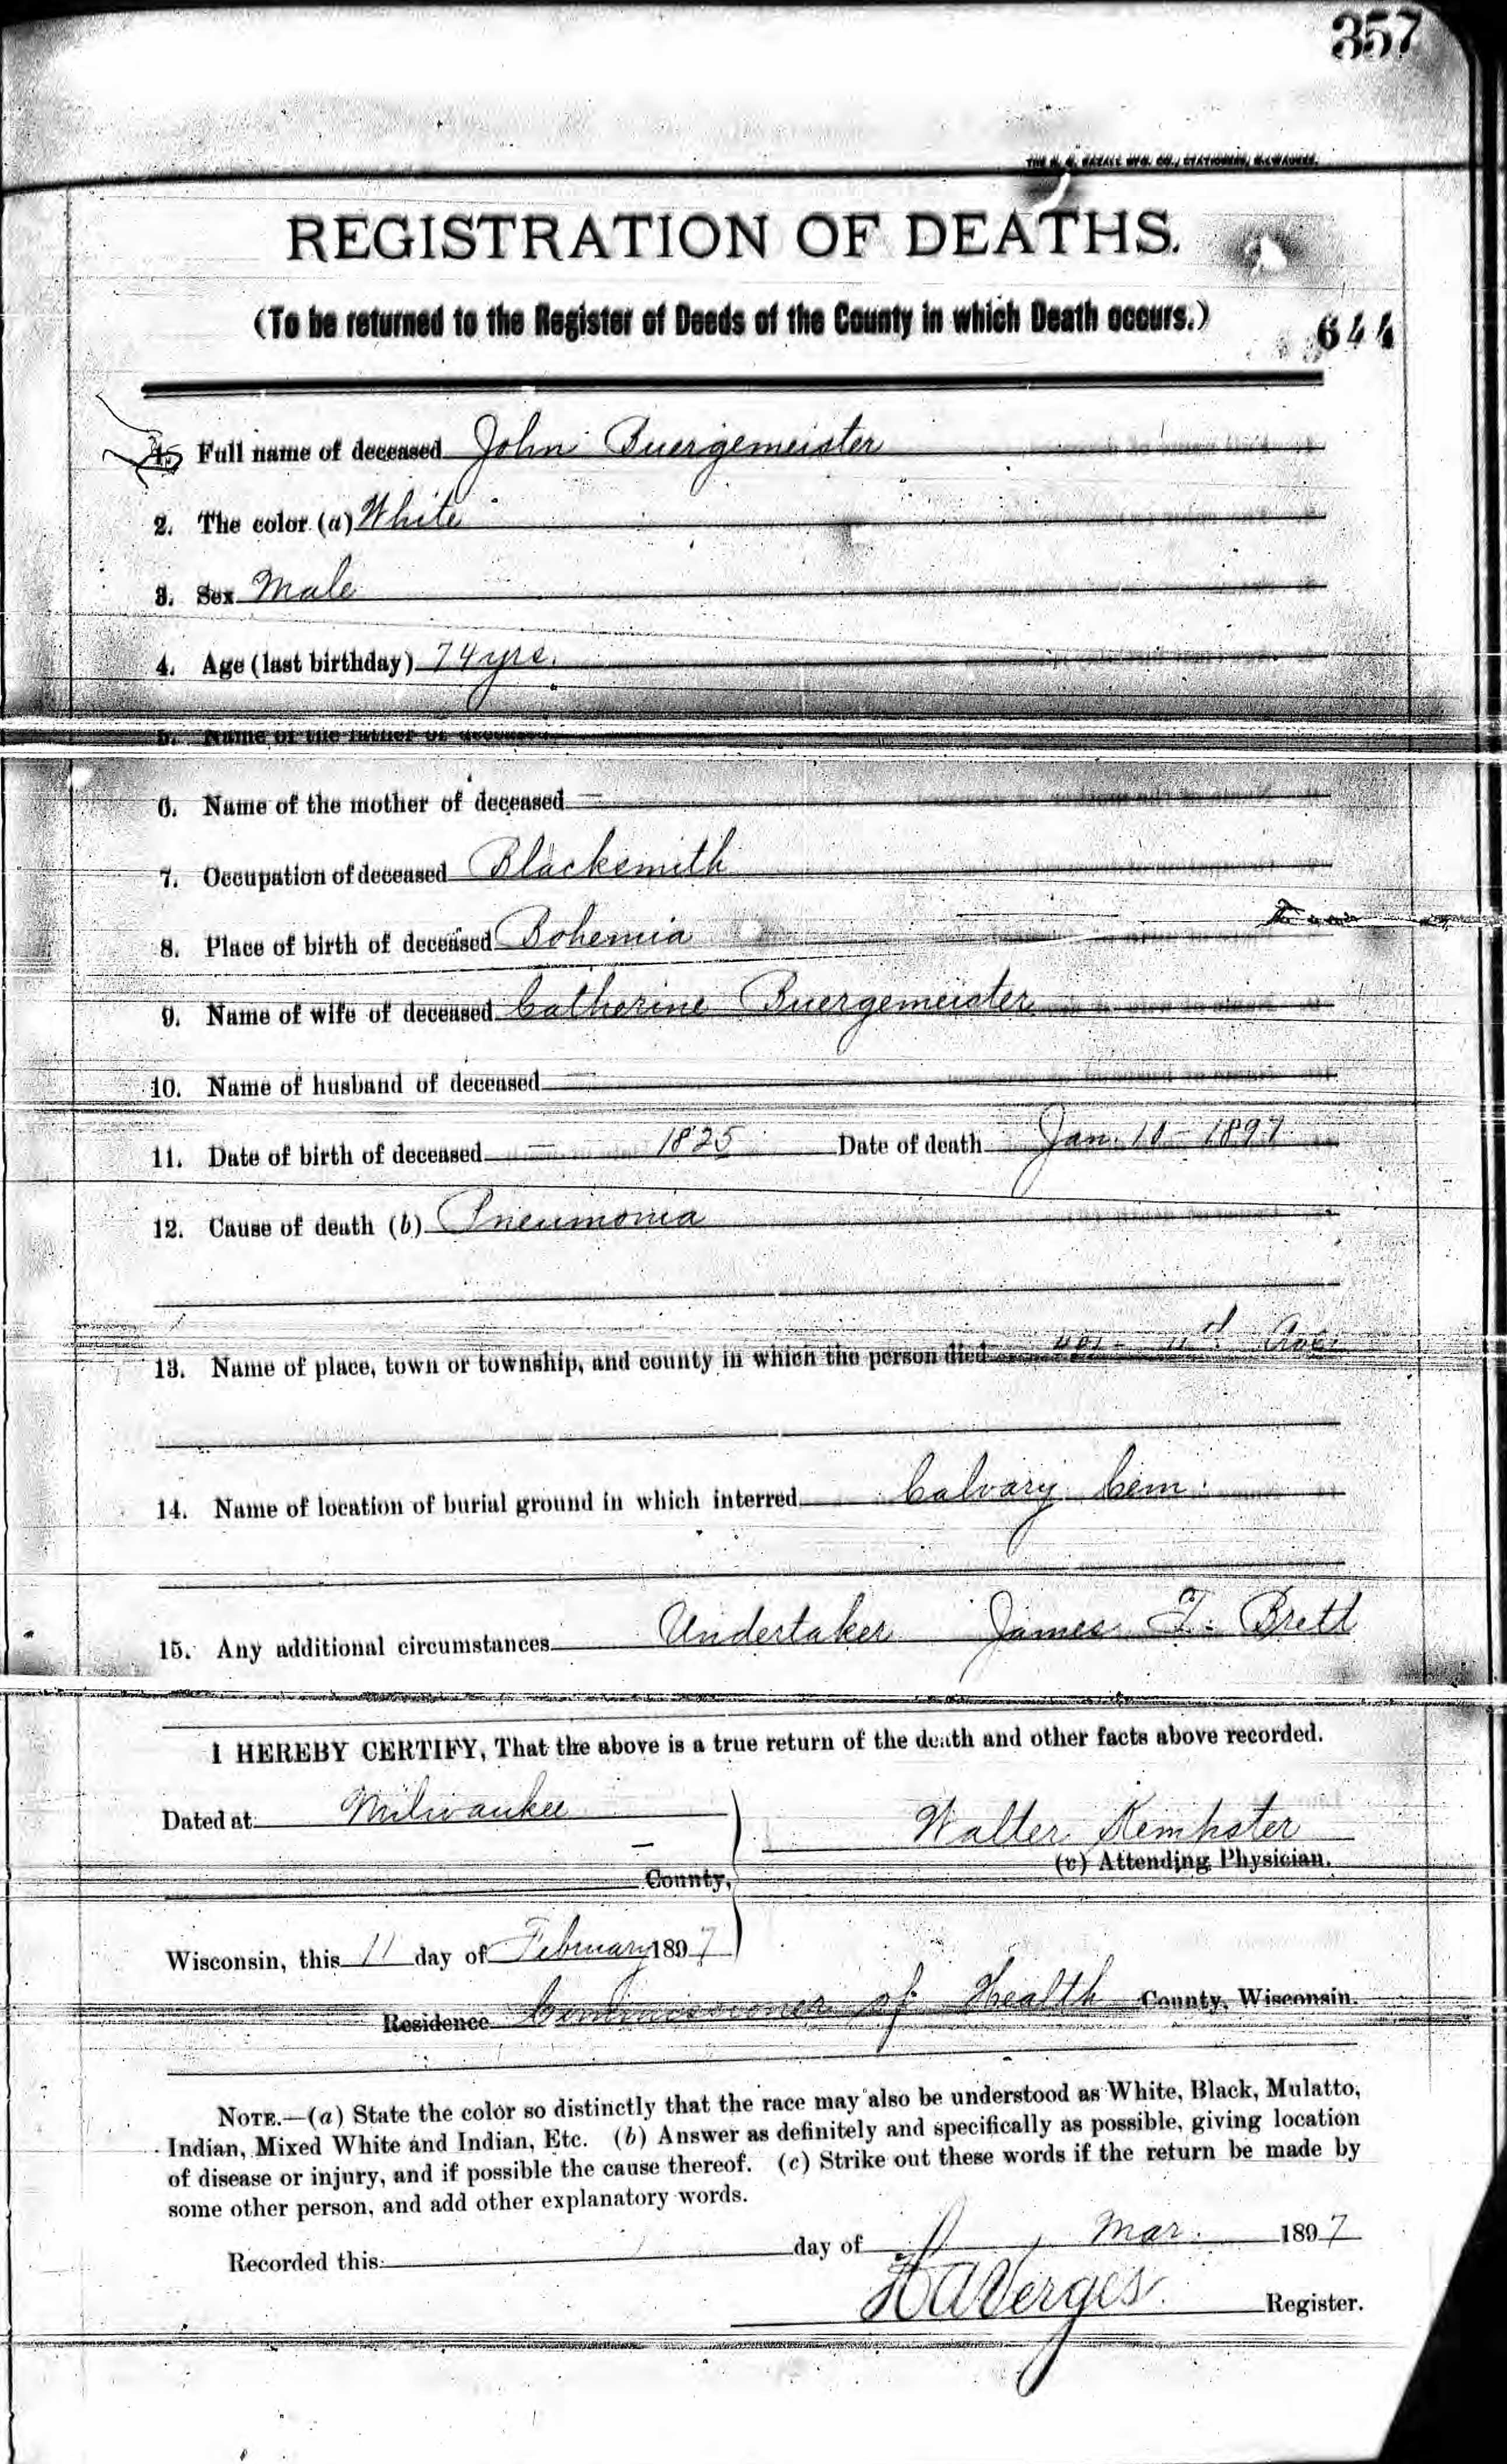 357
REGISTRATION OF DEATHS.
(To be returned to the Register of Deeds of the County in which Death occurs.)
644
1. Full name of deceased John Buergemeister
2. The color (a) White
3. Sex Male
4. Age (last birthday) 74 yrs.
5. Name of the father of deceased
6. Name of the mother of deceased —
7. Occupation of deceased Blacksmith
8. Place of birth of deceased Bohemia
9. Name of wife of deceased Catherine Buergemeister
10. Name of husband of deceased
11. Date of birth of deceased — 1825 Date of death Jan. 10 - 1897
12. Cause of death (b) Pneumonia
13. Name of place, town or township, and county in which the person died Ave.
14. Name of location of burial ground in which interred Calvary Cem.
15. Any additional circumstances Undertaker James F. Brett
I HEREBY CERTIFY, That the above is a true return of the death and other facts above recorded.
Dated at Milwaukee
Walter Kempster
(c) Attending Physician.
County,
Wisconsin, this 11 day of February 1897
Residence Commissioner of Health County, Wisconsin.
NOTE.—(a) State the color so distinctly that the race may also be understood as White, Black, Mulatto,
Indian, Mixed White and Indian, Etc. (b) Answer as definitely and specifically as possible, giving location
of disease or injury, and if possible the cause thereof. (c) Strike out these words if the return be made by
some other person, and add other explanatory words.
Recorded this day of Mar. 1897
Register.